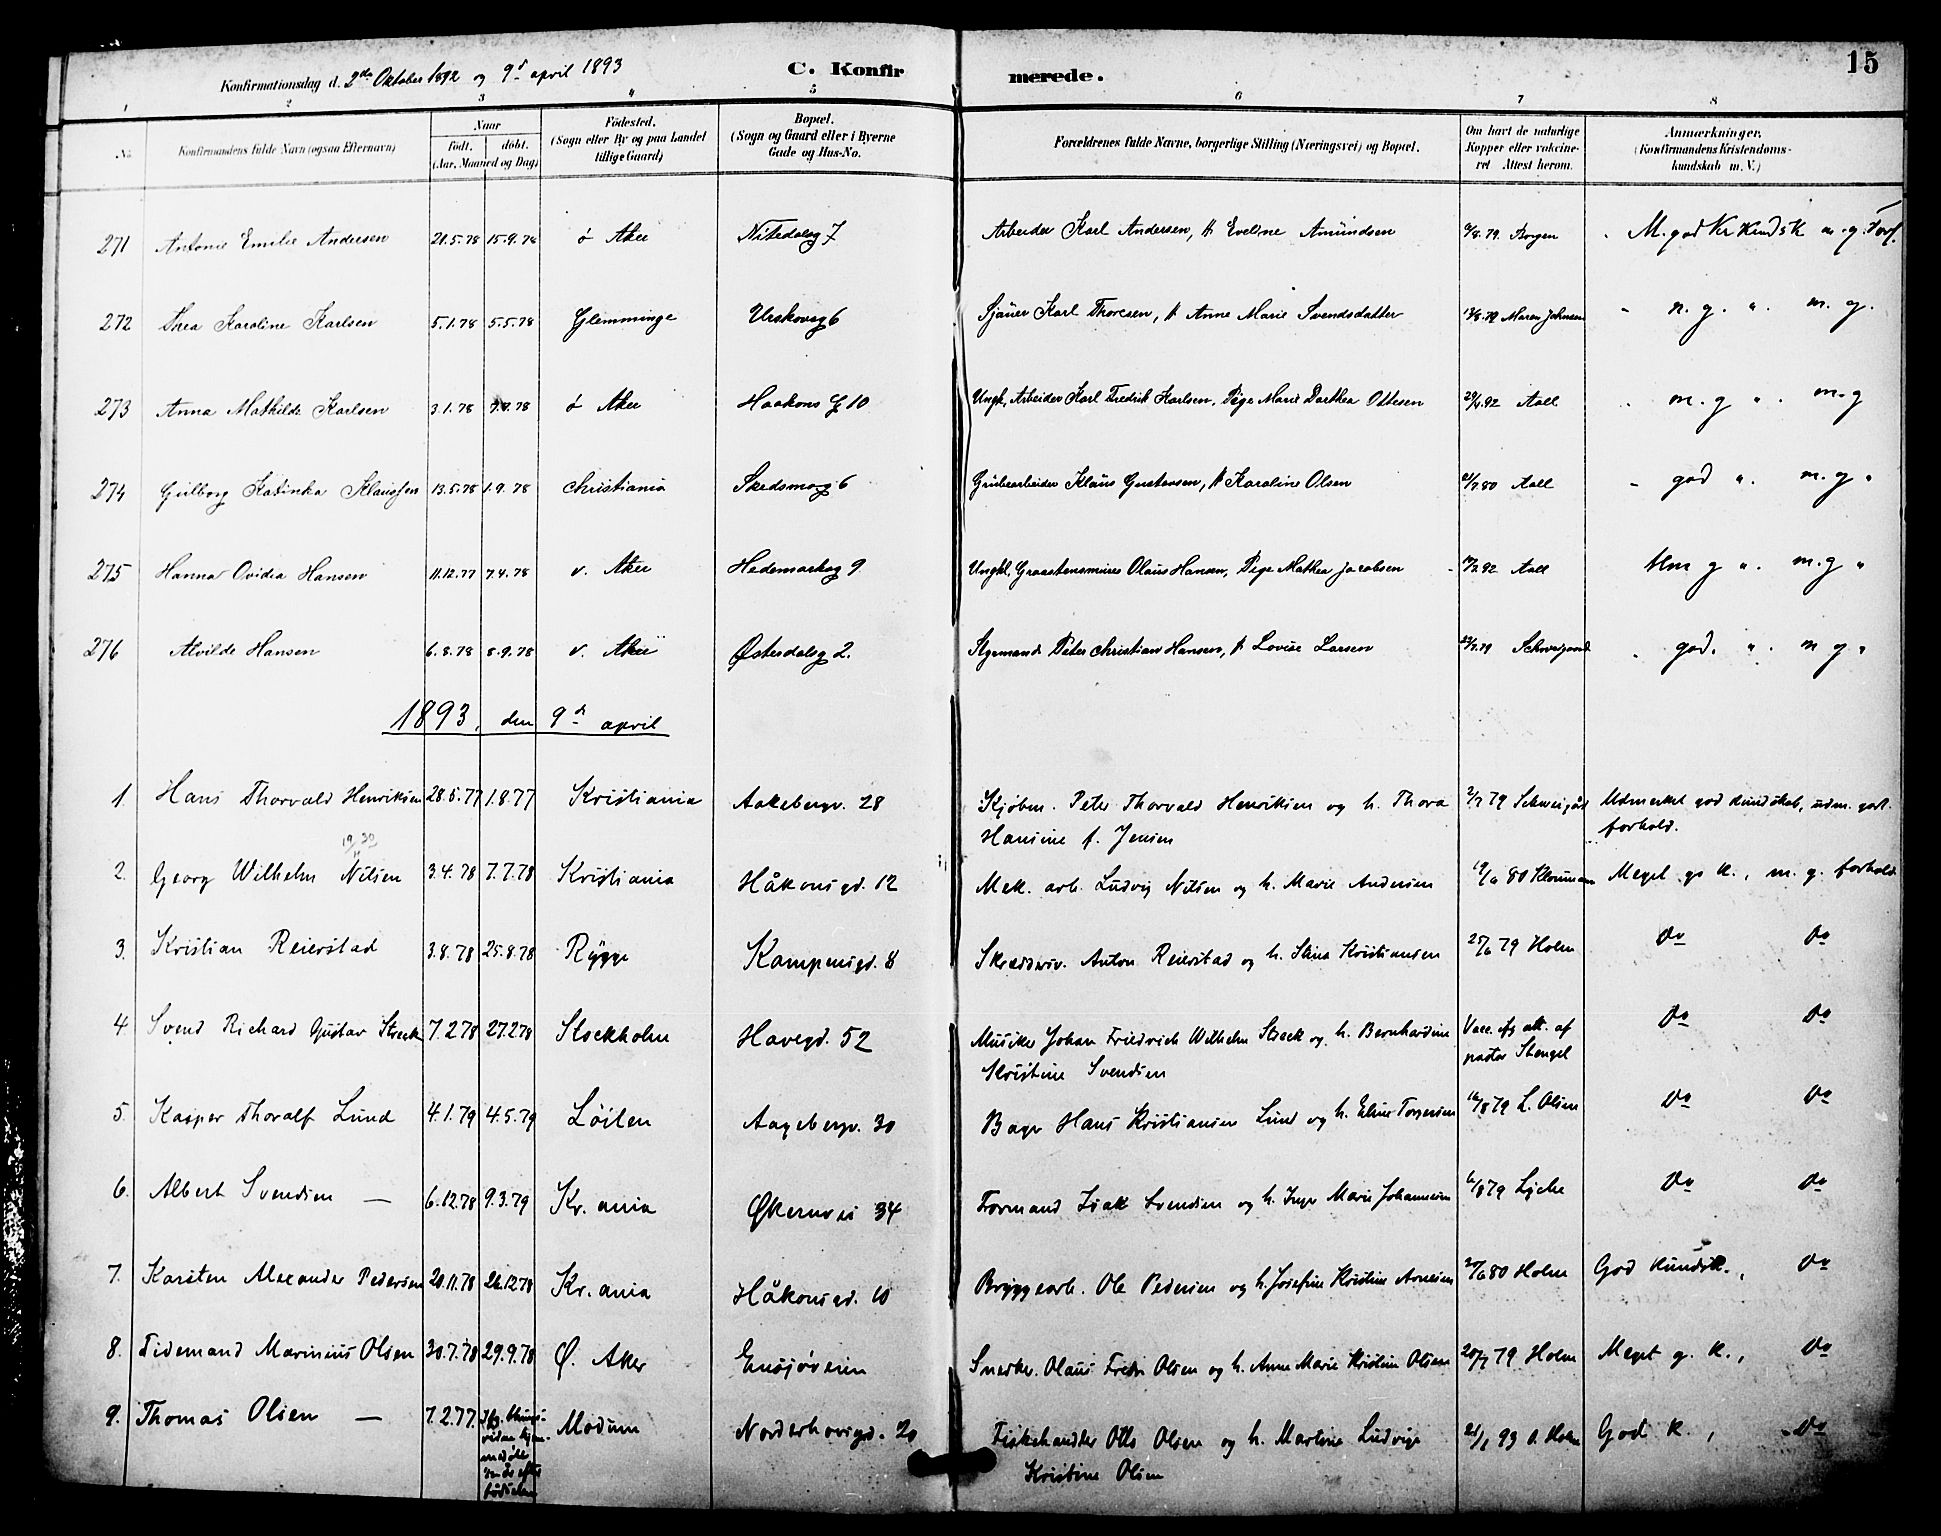 15
Konfirmationsdag d. 2den Oktober 1892 og 9d april 1893 C. Konfirmerede.
1 2 3 4 5 6 7 8
No. Konfirmandens fulde Navn (ogsaa Efternavn) Naar født. døbt. (Aar, Maaned og Dag) Fødested. (Sogn eller By og paa Landet tillige Gaard) Bopæl. (Sogn og Gaard eller i Byerne Gade og Hus-No. Forældrenes fulde Navne, borgerlige Stilling (Næringsvei) og Bopæl. Om havt de naturlige Kopper eller vakcineret Attest herom. Anmærkninger. (Konfirmandens Kristendomskundskab m. V.)
271 Antonie Emilie Andersen 21.5.78 15.9.78 ø Aker Nitedalsg 7 Arbeider Karl Andersen, h Eveline Amundsen 79. Borgen M. god Kr kundsk m. g. Forh.
272 Thea Karoline Karlsen 5.1.78 5.5.78 Glemminge Urskovsg 6 Sjauer Karl Thoresen, h Anne Marie Svendsdatter Maren Johnsen " n. g. ". m. g.
273 Anna Mathilde Karlsen 3.1.78 78 ø Aker Haakons G 10 Ungk, Arbeider Karl Fredrik Karlsen, Pige Marie Dorthea Ottesen 92 Aall " m. g ". m. g
274 Gulborg Katinka Klaussen 13.5.78 1.9.78 Christiania Skedsmog 6 Grubearbeider Klaus Gustavsen, h Karoline Olsen 80 Aall " god ". m. g "
275 Hanna Ovidia Hansen 11.12.77 7.4.78 v. Aker Hedemarksg 9 Ungkl, Graastensmurer Olaus Hansen, Pige Mathea Jacobsen 92 Aall g ". m. g "
276 Alvilde Hansen 6.8.78 8.9.78 v. Aker Østerdalsg 2. Styrmand Peter Christian Hansen, h Lovise Larsen Schweigaard " god. ". m g "
1893, den 9d april
1. Hans Thorvald Henriksen 28.5.77 1.8.77 Kristiania Aakebergv. 28 Kjøbm. Peter Thorvald Henriksen og h. Thora 2/7 79 Schweigård Udmerket god kundskab, udm. godt
Hansine f. Jensen forhold.
19/11 30
2. Georg Wilhelm Nilsen 3.4.78 7.7.78 Kristiania Håkonsgd. 12 Mek. arb. Ludvig Nilsen og h. Marie Andersen 19/6 80 Kloumann Meget go k., m. g. forhold.
3. Kristian Reierstad 3.8.78 25.8.78 Rygge Kampensgd. 8 Skræddersv. Anton Reierstad og h. Stina Kristiansen 25/6 79 Holm Do Do
4. Svend Richard Gustav Streck 7.2.78 27.2.78 Stockholm Havegd. 52 Musiker Johan Friedrich Wilhelm Streck og h. Bernhardine Vacc. ifg att. af Do Do
Kristine Svendsen pastor Stengel
5. Kasper Thoralf Lund 4.1.79 4.5.79 Løiten Aagebergv. 30 Bager Hans Kristiansen Lund og h. Eline Torgersen 16/8 79 L. Olsen Do Do
6. Albert Svendsen — 6.12.78 9.3.79 Kr. ania Økernvei 34 Formand Isak Svendsen og h. Inger Marie Johannesen 6/8 79 Lyche Do Do
7. Karsten Alexander Pedersen 20.11.78 26.12.78 Kr. ania Håkonsgd. 10 Bryggearb. Ole Pedersen og h. Josefine Kristine Arnesen 80 Holm God kundsk., Do
8. Tidemand Marinius Olsen 30.7.78 29.9.78 Ø. Aker Ensjøveien Snedker. Olaus Fredr Olsen og h. Anne Marie Kristine Olsen 79 Holm Meget g. k., Do
9. Thomas Olsen — 7.2.77. Modum Norderhovsgd. 20 Fiskehandler Otto Olsen og h. Martine Ludvige 93 O. Holm God k., Do
Kristine Olsen